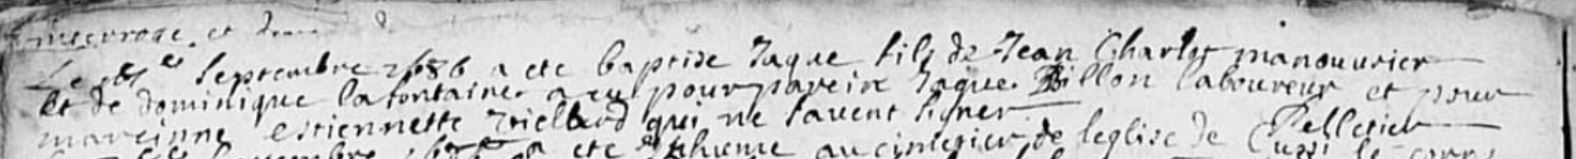 et dem
Le septembre 1686 a ete baptise Jaque fils de Jean Charles manouurier
et de dominique lafontaine a eu pour pareire Jaque Billon laboureur et pour
mareinne estiennette vielbard qui ne sauent signer Pelletier
a ete inhume au cimetier de leglise de Cussi le corps